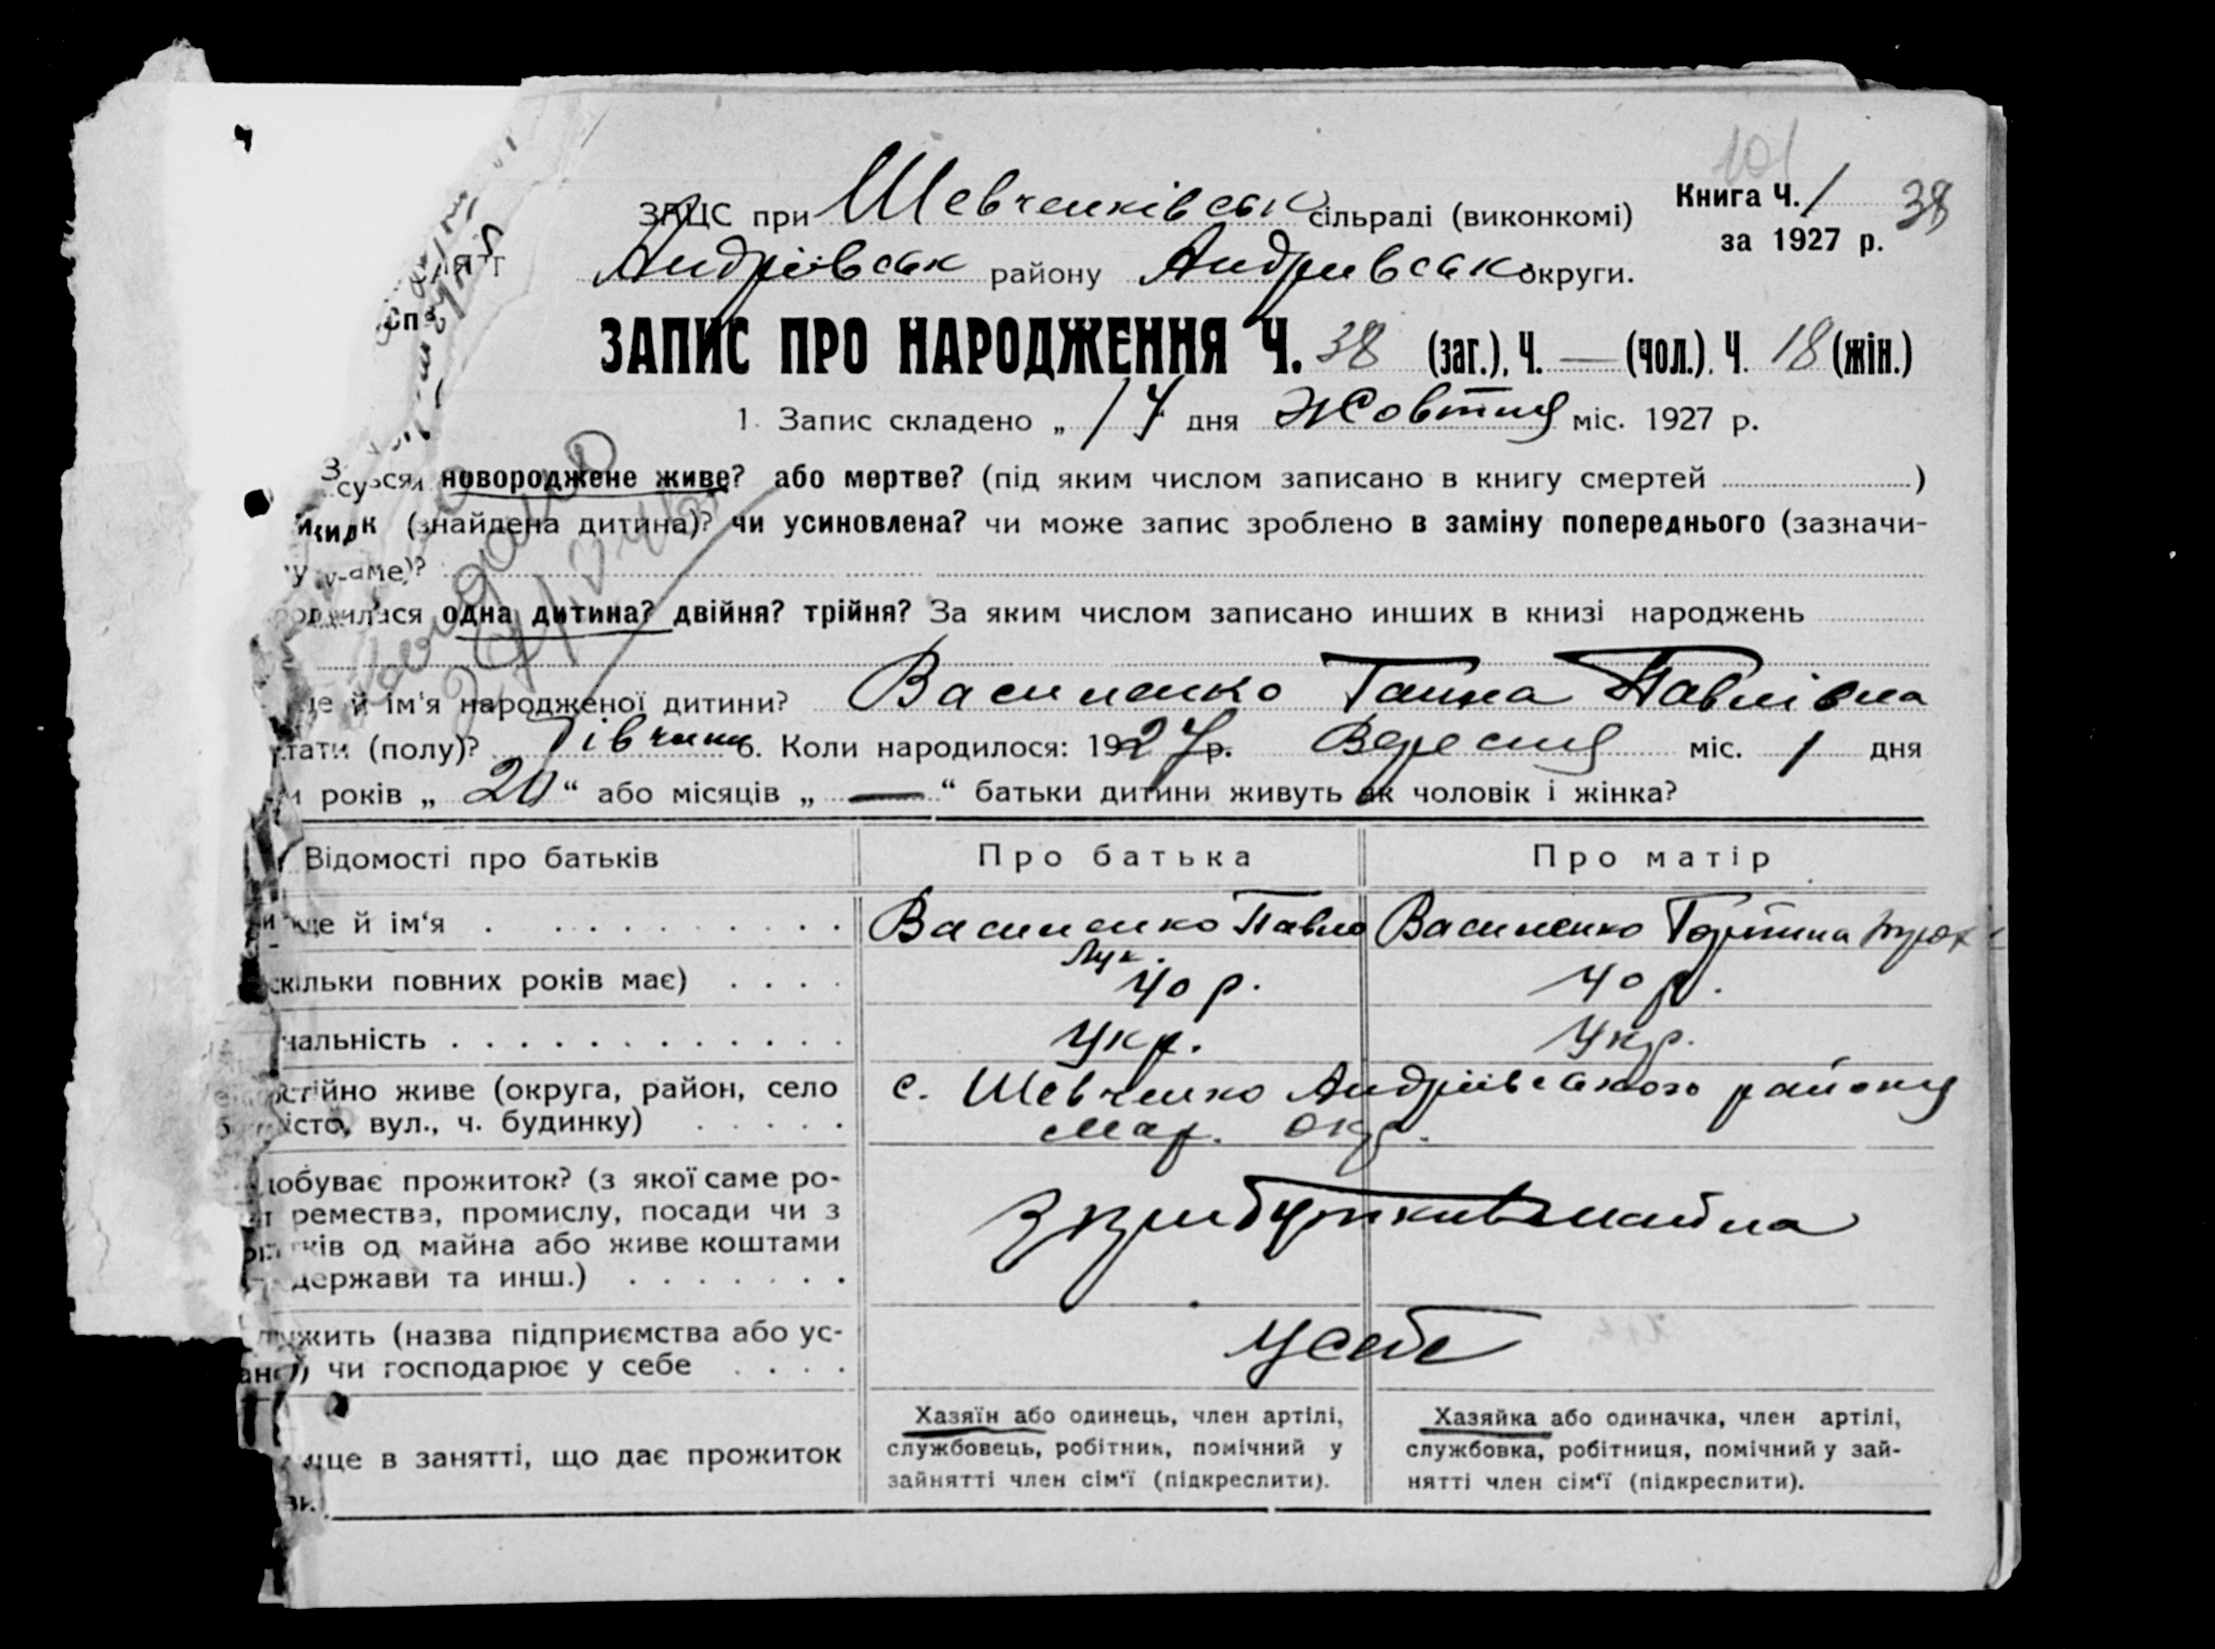 101
ЗАЦС при Шевченківськ сільраді (виконкомі) Книга Ч. 1 38
за 1927 р.
Андріївськ району Андриівськ округи.
ЗАПИС ПРО НАРОДЖЕННЯ Ч. 38 (заг.), Ч. — (чол.). Ч. 18 (жін.)
1. Запис складено „ 14 дня Жовтня міс. 1927 р.
новороджене живе? або мертве? (під яким числом записано в книгу смертей )
(знайдена дитина)? чи усиновлена? чи може запис зроблено в заміну попереднього (зазначи-
одна дитина? двійня? трійня? За яким числом записано инших в книзі народжень
й ім'я народженої дитини? Василенко Ганна Павлівна
(полу)? Дівчина 6. Коли народилося: 1927 р. Вересня міс. 1 дня
років „ 20 “ або місяців „ — “ батьки дитини живуть як чоловік і жінка?
Відомості про батьків Про батька Про матір
й ім‘я Василенко Павло Лук. Василенко Горпина
скільки повних років має) 40 р. 40 р.
нальність Укр. Укр.
живе (округа, район, село с. Шевченко Андріівського району
вул., ч. будинку) Мар. Окр.
добуває прожиток? (з якої саме ро-
ремества, промислу, посади чи з з прибутків майна
од майна або живе коштами
держави та инш.)
(назва підприємства або ус- У себе
чи господарює у себе
Хазяїн або одинець, член артілі, Хазяйка або одиначка, член артілі,
в занятті, що дає прожиток службовець, робітник, помічний у службовка, робітниця, помічний у зай-
зайнятті член сім‘ї (підкреслити). нятті член сім‘ї (підкреслити).